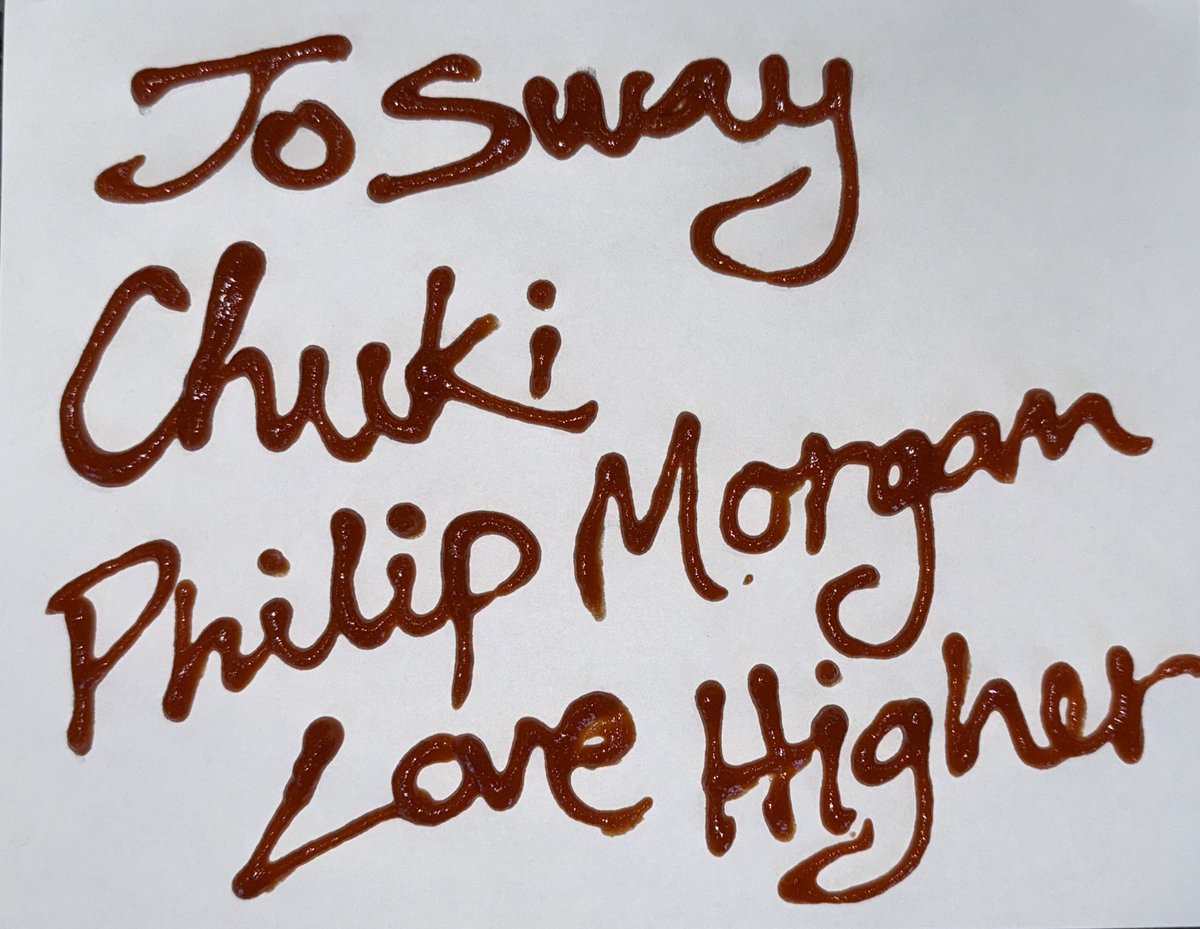 Jo Sway
Chuki
Philip Morgan
Love Higher